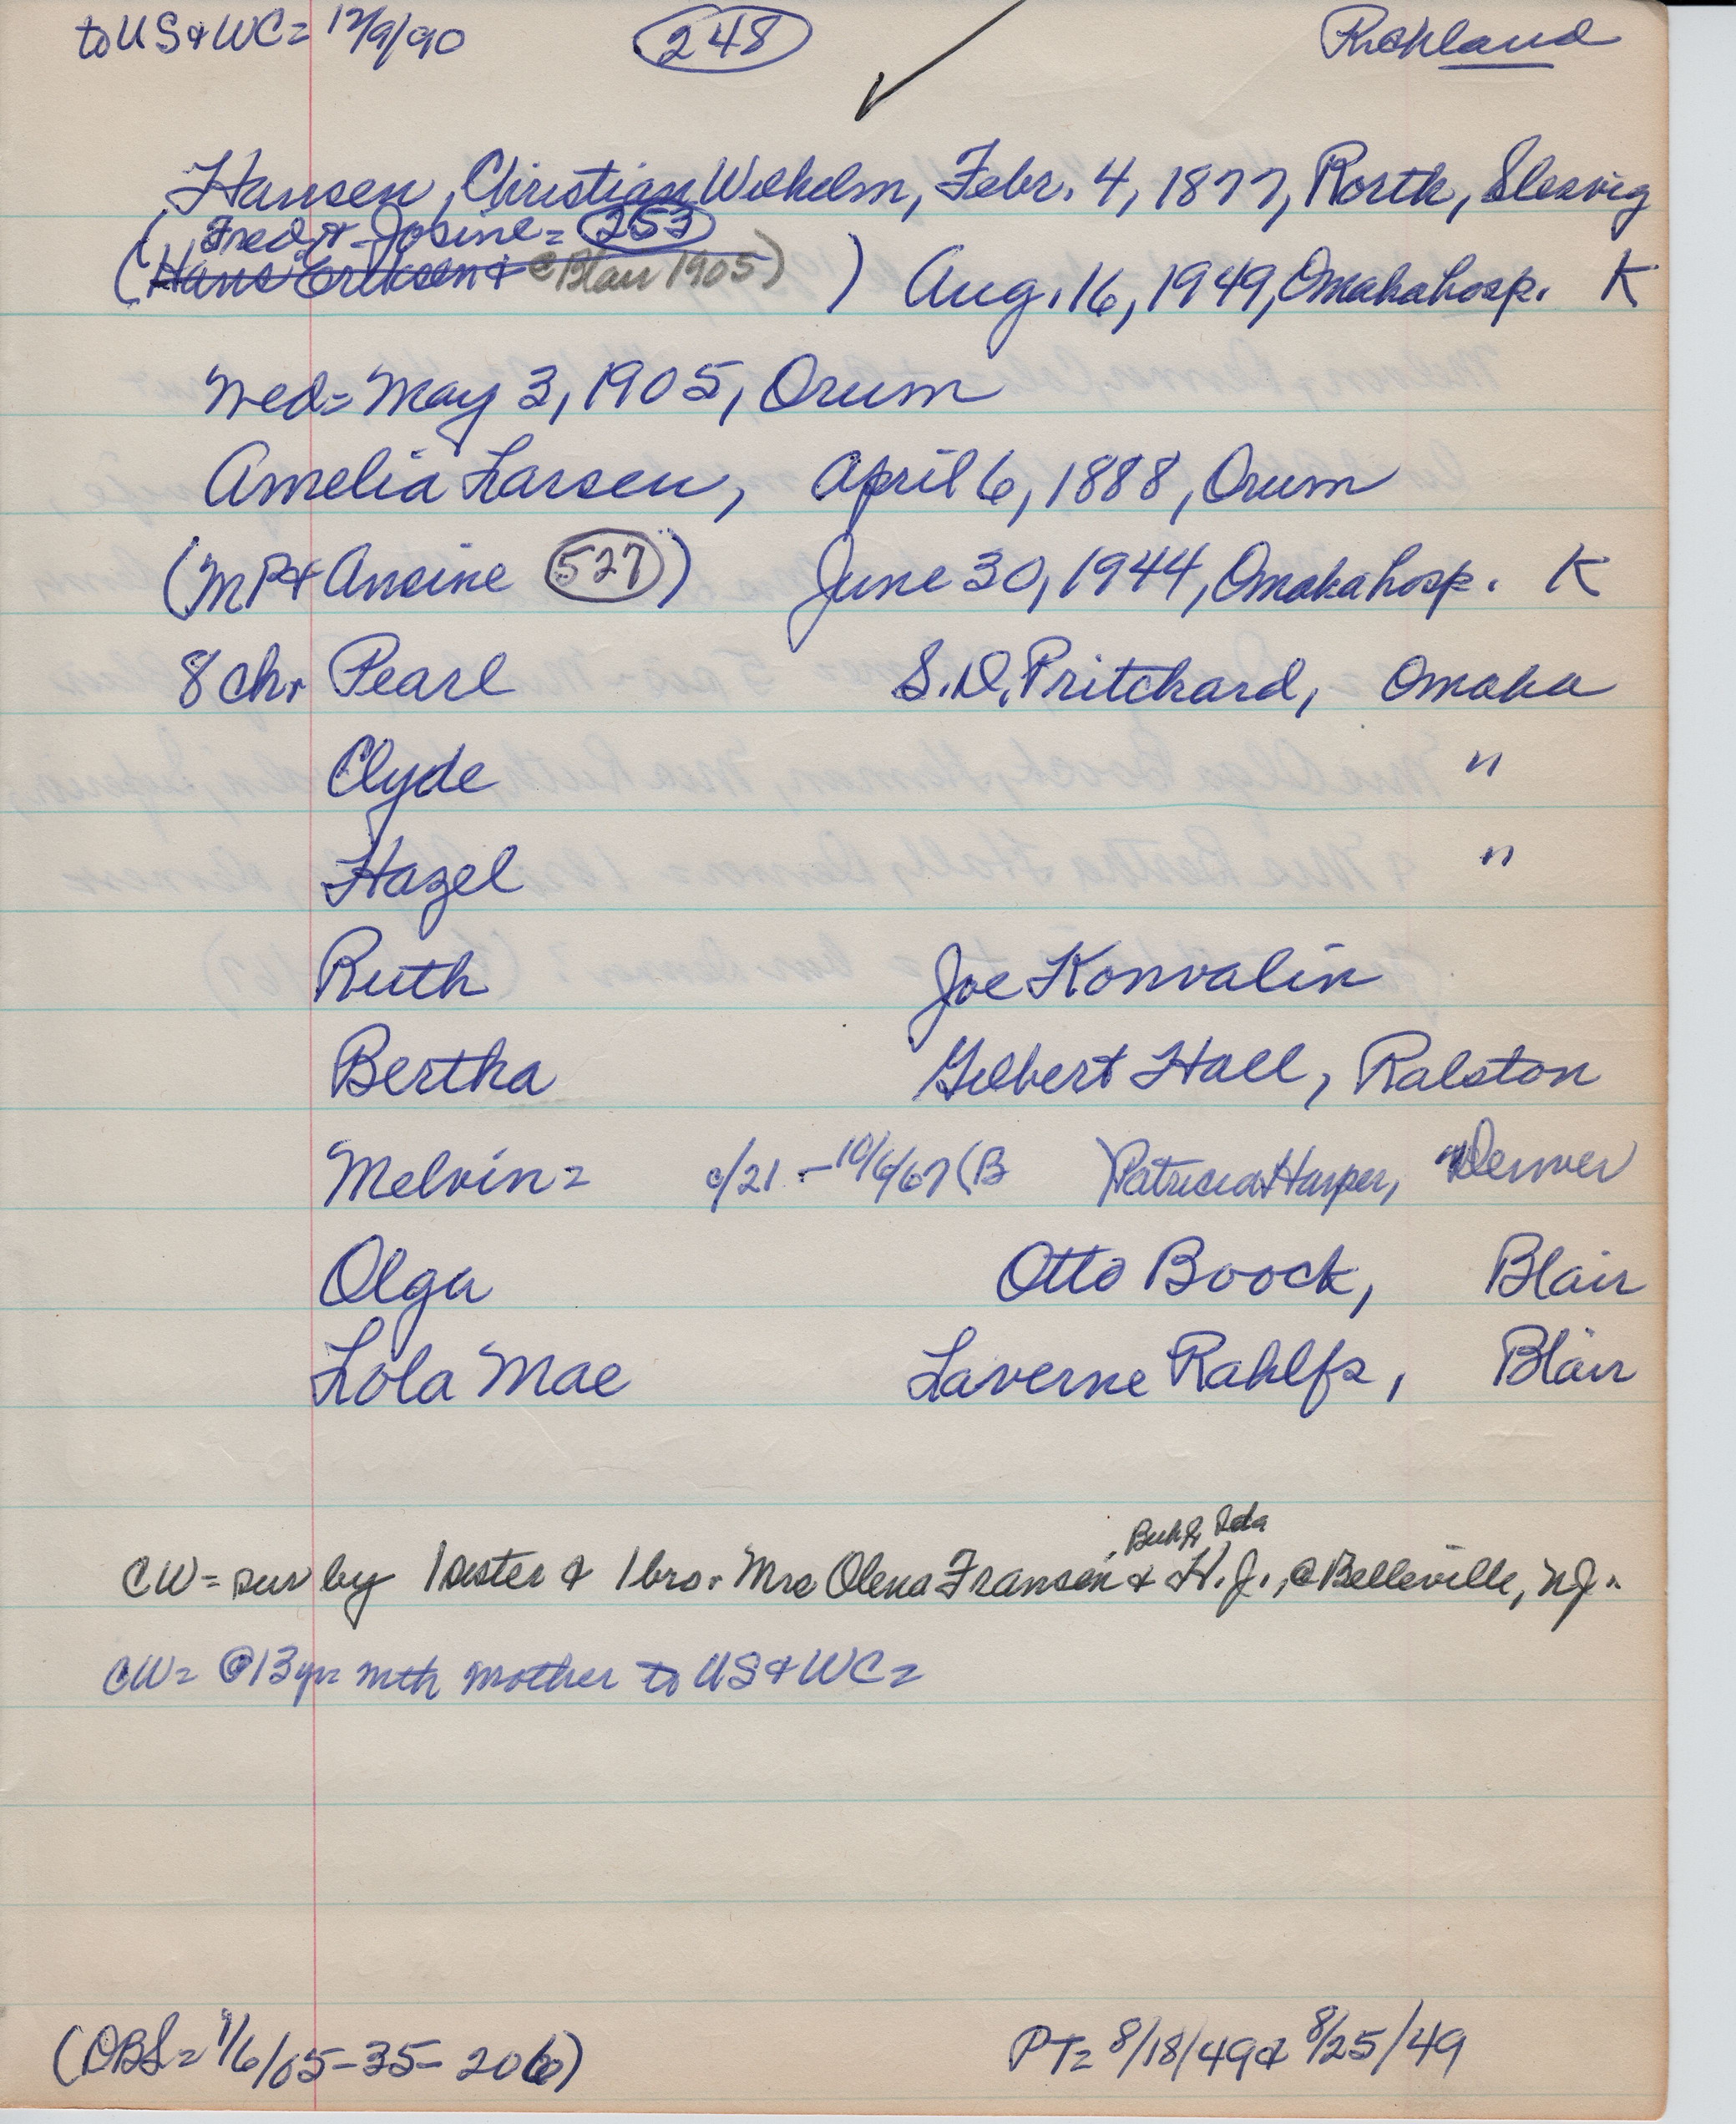 to US & WC = 12/9/90 248 Richland
Hansen, Christian Wilhelm, Febr. 4, 1877, Rorth, Slesvig
(Fred & Josine = 253
(Hans Eriksen & @ Blair 1905) ) Aug. 16, 1949, Omaha hosp. K
Wed = May 3, 1905, Orum
Amelia Larsen, April 6, 1888, Orum
(MP & Ansine 527) June 30, 1944, Omaha hosp. K
8 chr Pearl S.D. Pritchard, Omaha
Clyde "
Hazel "
Ruth Joe Konvalin
Bertha Gilbert Hall, Ralston
Melvin = c/21 - 10/6/67 (B ) Patricia Harper, Denver
Olga Otto Boock, Blair
Lola Mae Laverne Rahlfs, Blair
Ida
CW = sur by 1 sister & 1 bro. Mrs Olena Fransen & H.J., @ Belleville, NJ.
CW = @ 13 yr = with mother to US & WC =
(DBL = 1/6/05-35-206) PT = 8/18/49 & 8/25/49